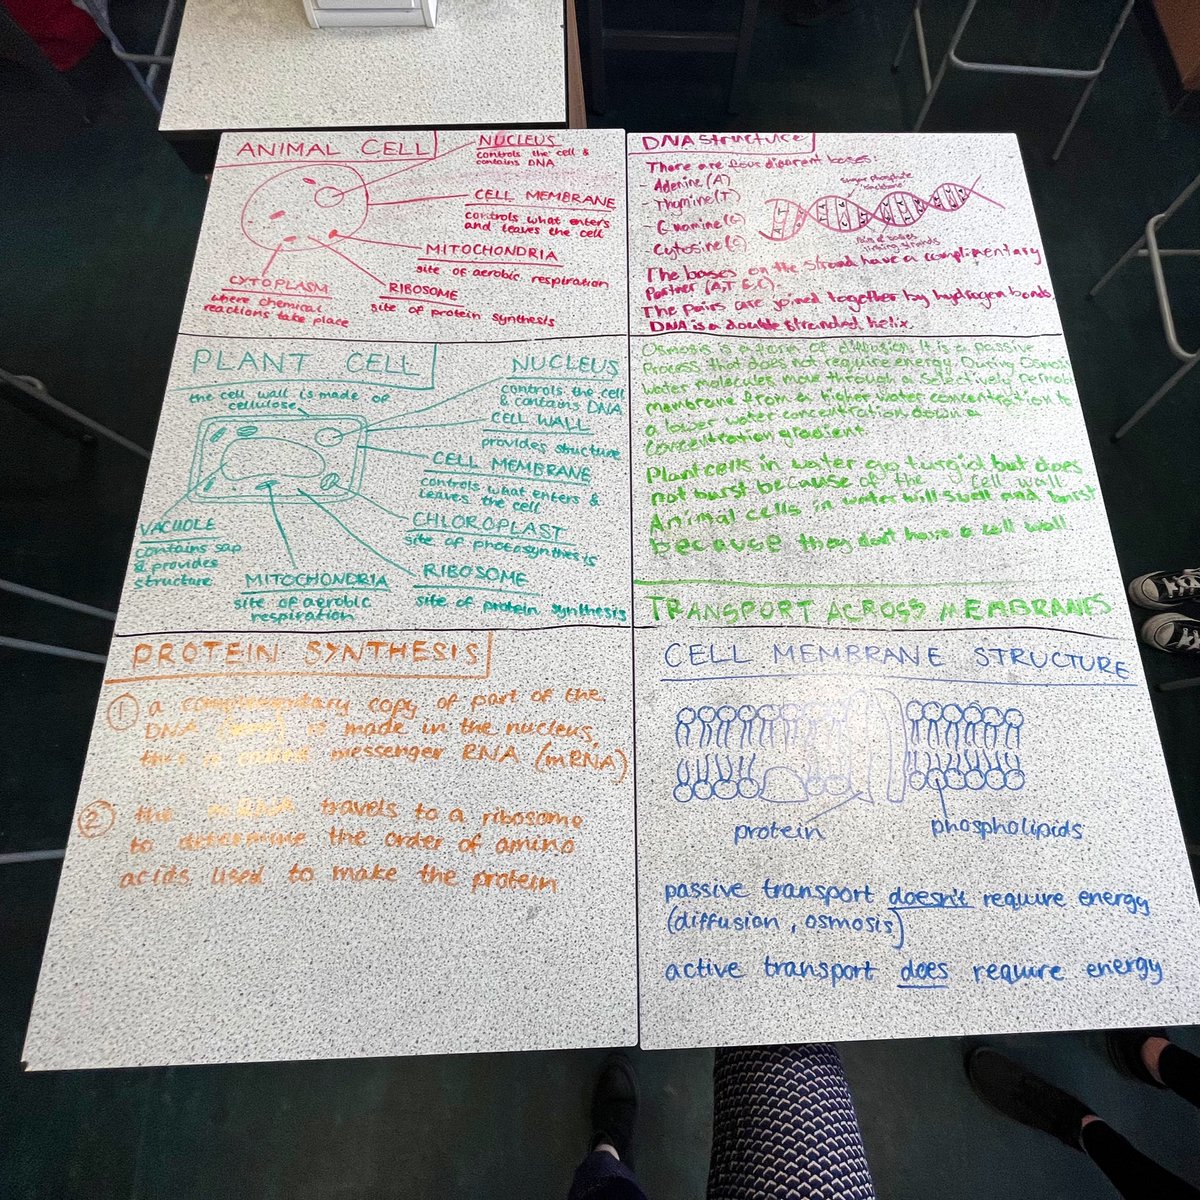 ANIMAL CELL
NUCLEUS
controls the cell &
contains DNA
CELL MEMBRANE
controls what enters
and leaves the cell
MITOCHONDRIA
site of aerobic respiration
CYTOPLASM
where chemical
reactions take place
RIBOSOME
site of protein synthesis
DNA Structure
There are four
bases:
- Adenine (A)
- Thymine (T)
Cytosine (C)
sugar phosphate
backbone
The bases on the strand have a complimentary
Partner (A,T G,C).
The Pairs are joined together by hydrogen bonds.
DNA is a double stranded helix.
PLANT CELL
the cell wall is made of
cellulose
NUCLEUS
controls the cell
& contains DNA
CELL WALL
provides structure
CELL MEMBRANE
controls what enters &
leaves the cell
CHLOROPLAST
site of photosynthesis
VACUOLE
contains sap
& provides
structure
MITOCHONDRIA
site of aerobic
respiration
RIBOSOME
site of protein synthesis
Osmosis is a form of diffusion. It is a passive
Process that does not require energy. During
water molecules move through a selectively
membrane from a higher water concentration to
a lower water concentration down a
concentration gradient.
Plant cells in water go turgid but does
not burst because of the cell wall
Animal cells in water will swell and burst
because they don't have a cell wall.
TRANSPORT ACROSS MEMBRANES
PROTEIN SYNTHESIS
① a complementary copy of part of the
DNA is made in the nucleus,
messenger RNA (mRNA)
② the mRNA travels to a ribosome
to determine the order of amino
acids used to make the protein
CELL MEMBRANE STRUCTURE
protein
phospholipids
passive transport doesn't require energy
(diffusion, osmosis)
active transport does require energy